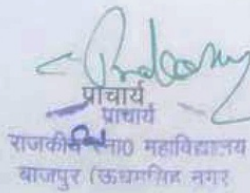 प्राचार्य
प्राचार्य
राजकीय स्ना0 महाविद्यालय
बाजपुर (ऊधमसिंह नगर